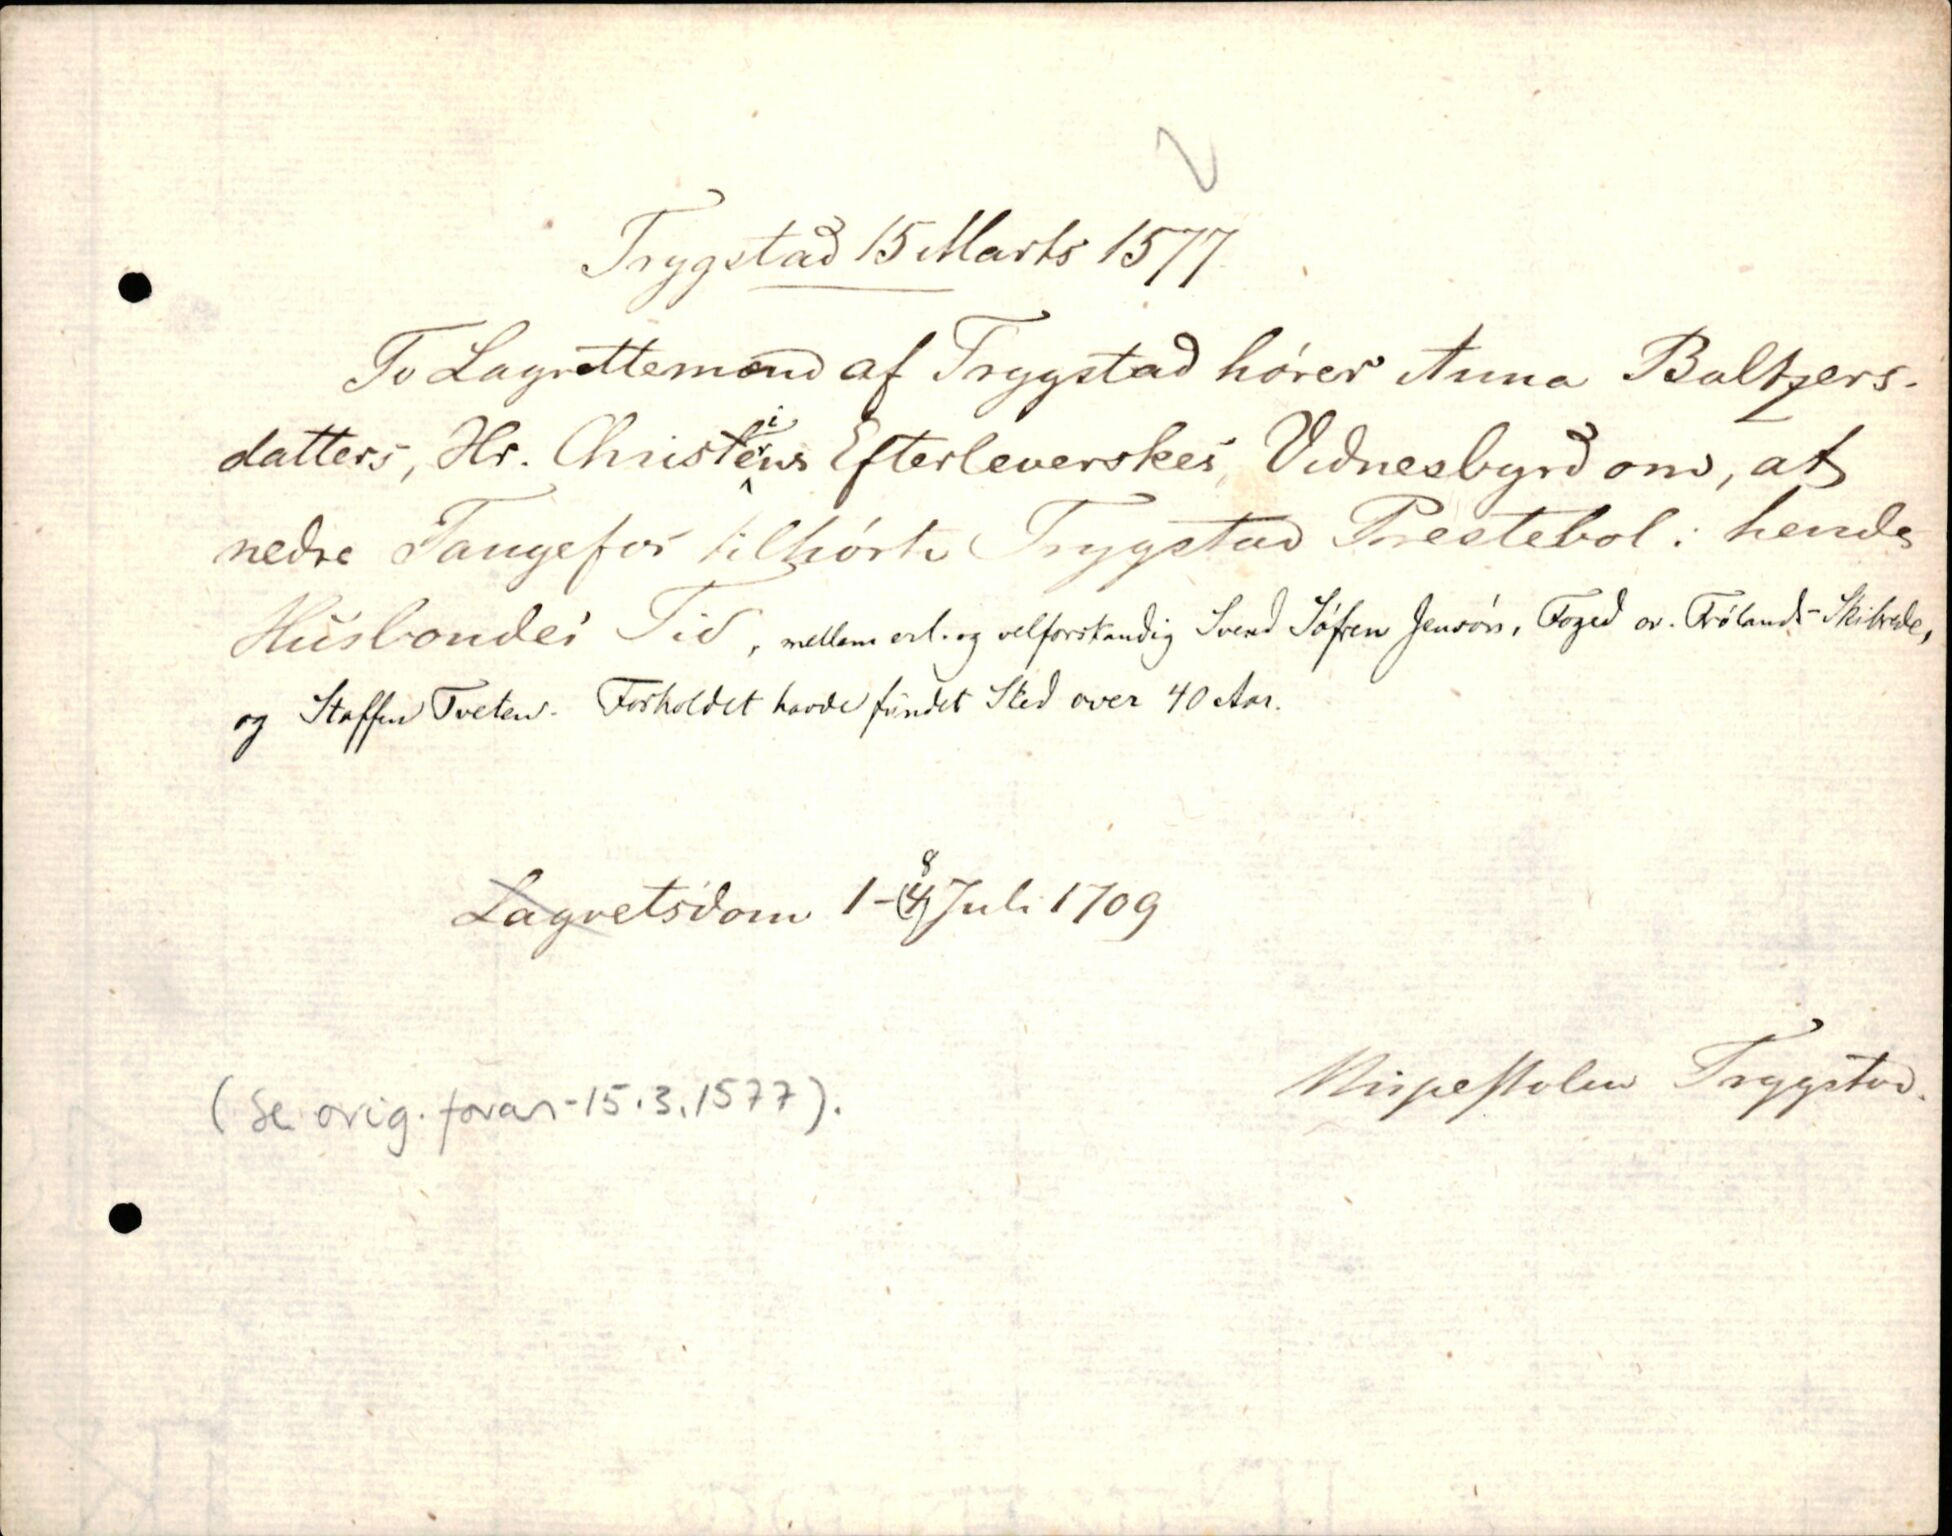 Trygstad 15 Marts 1577
To Lagrettemænd af Trygstad hører Anna Baltzers-
datters, Hr. Christierns Efterleverskes, Vidnesbyrd om, at
nedre Tangefos tilhørte Trygstad Prestebol i hendes
Husbondes Tid, mellem erl. og velforstandig Svend Søfren Jensøn, Foged ov. Frølands Skibrede,
og Staffen Tveten. Forholdet havde fundet Sted over 40 Aar.
Lagretsdom 1-8 Juli 1709
Trygstad.
(se orig. foran - 15.3.1577).